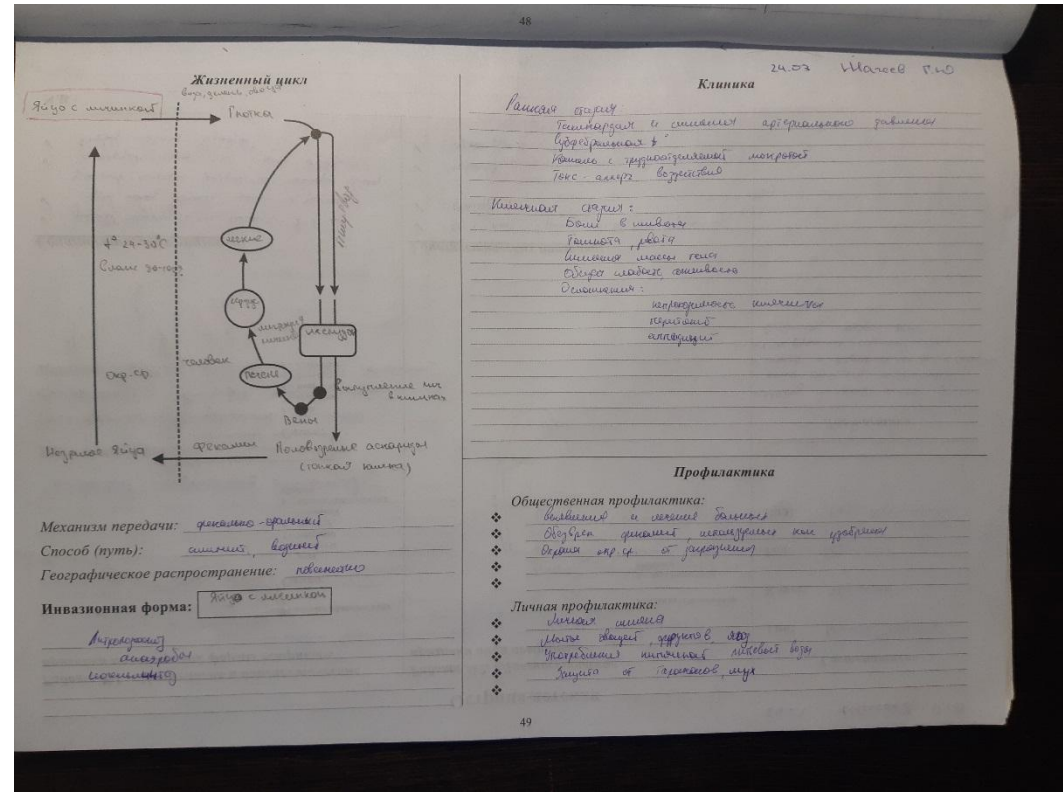 48
Жизненный цикл
Яйцо с личинкой
вода, зелень, овощи
Глотка
t° 24-30°C
легкие
сердце
человек
печень
Окр-ср.
Вены
Незрелое яйцо
Фекалии
Половозрелые аскариды
(тонкая кишка)
Механизм передачи: фекально-оральный
Способ (путь): пищевой, водный
Географическое распространение: повсеместно
Инвазионная форма: Яйцо с личинкой
24.03
Клиника
Ранняя стадия
артериального давления
Субфебрильная t°
Кашель с трудноотделяемой мокротой
Токс-аллерг воздействия
Кишечная стадия:
Боли в животе
Тошнота, рвота
Снижение массы тела
Общая слабость
Осложнения:
непроходимость кишечника
перитонит
аппендицит
Профилактика
Общественная профилактика:
выявление и лечение больных
фекалий, используемых как удобрения
Охрана окр. ср. от загрязнения
Личная профилактика:
Личная гигиена
Мытье овощей, фруктов, ягод
Употребление кипяченой питьевой воды
Защита от тараканов, мух
49